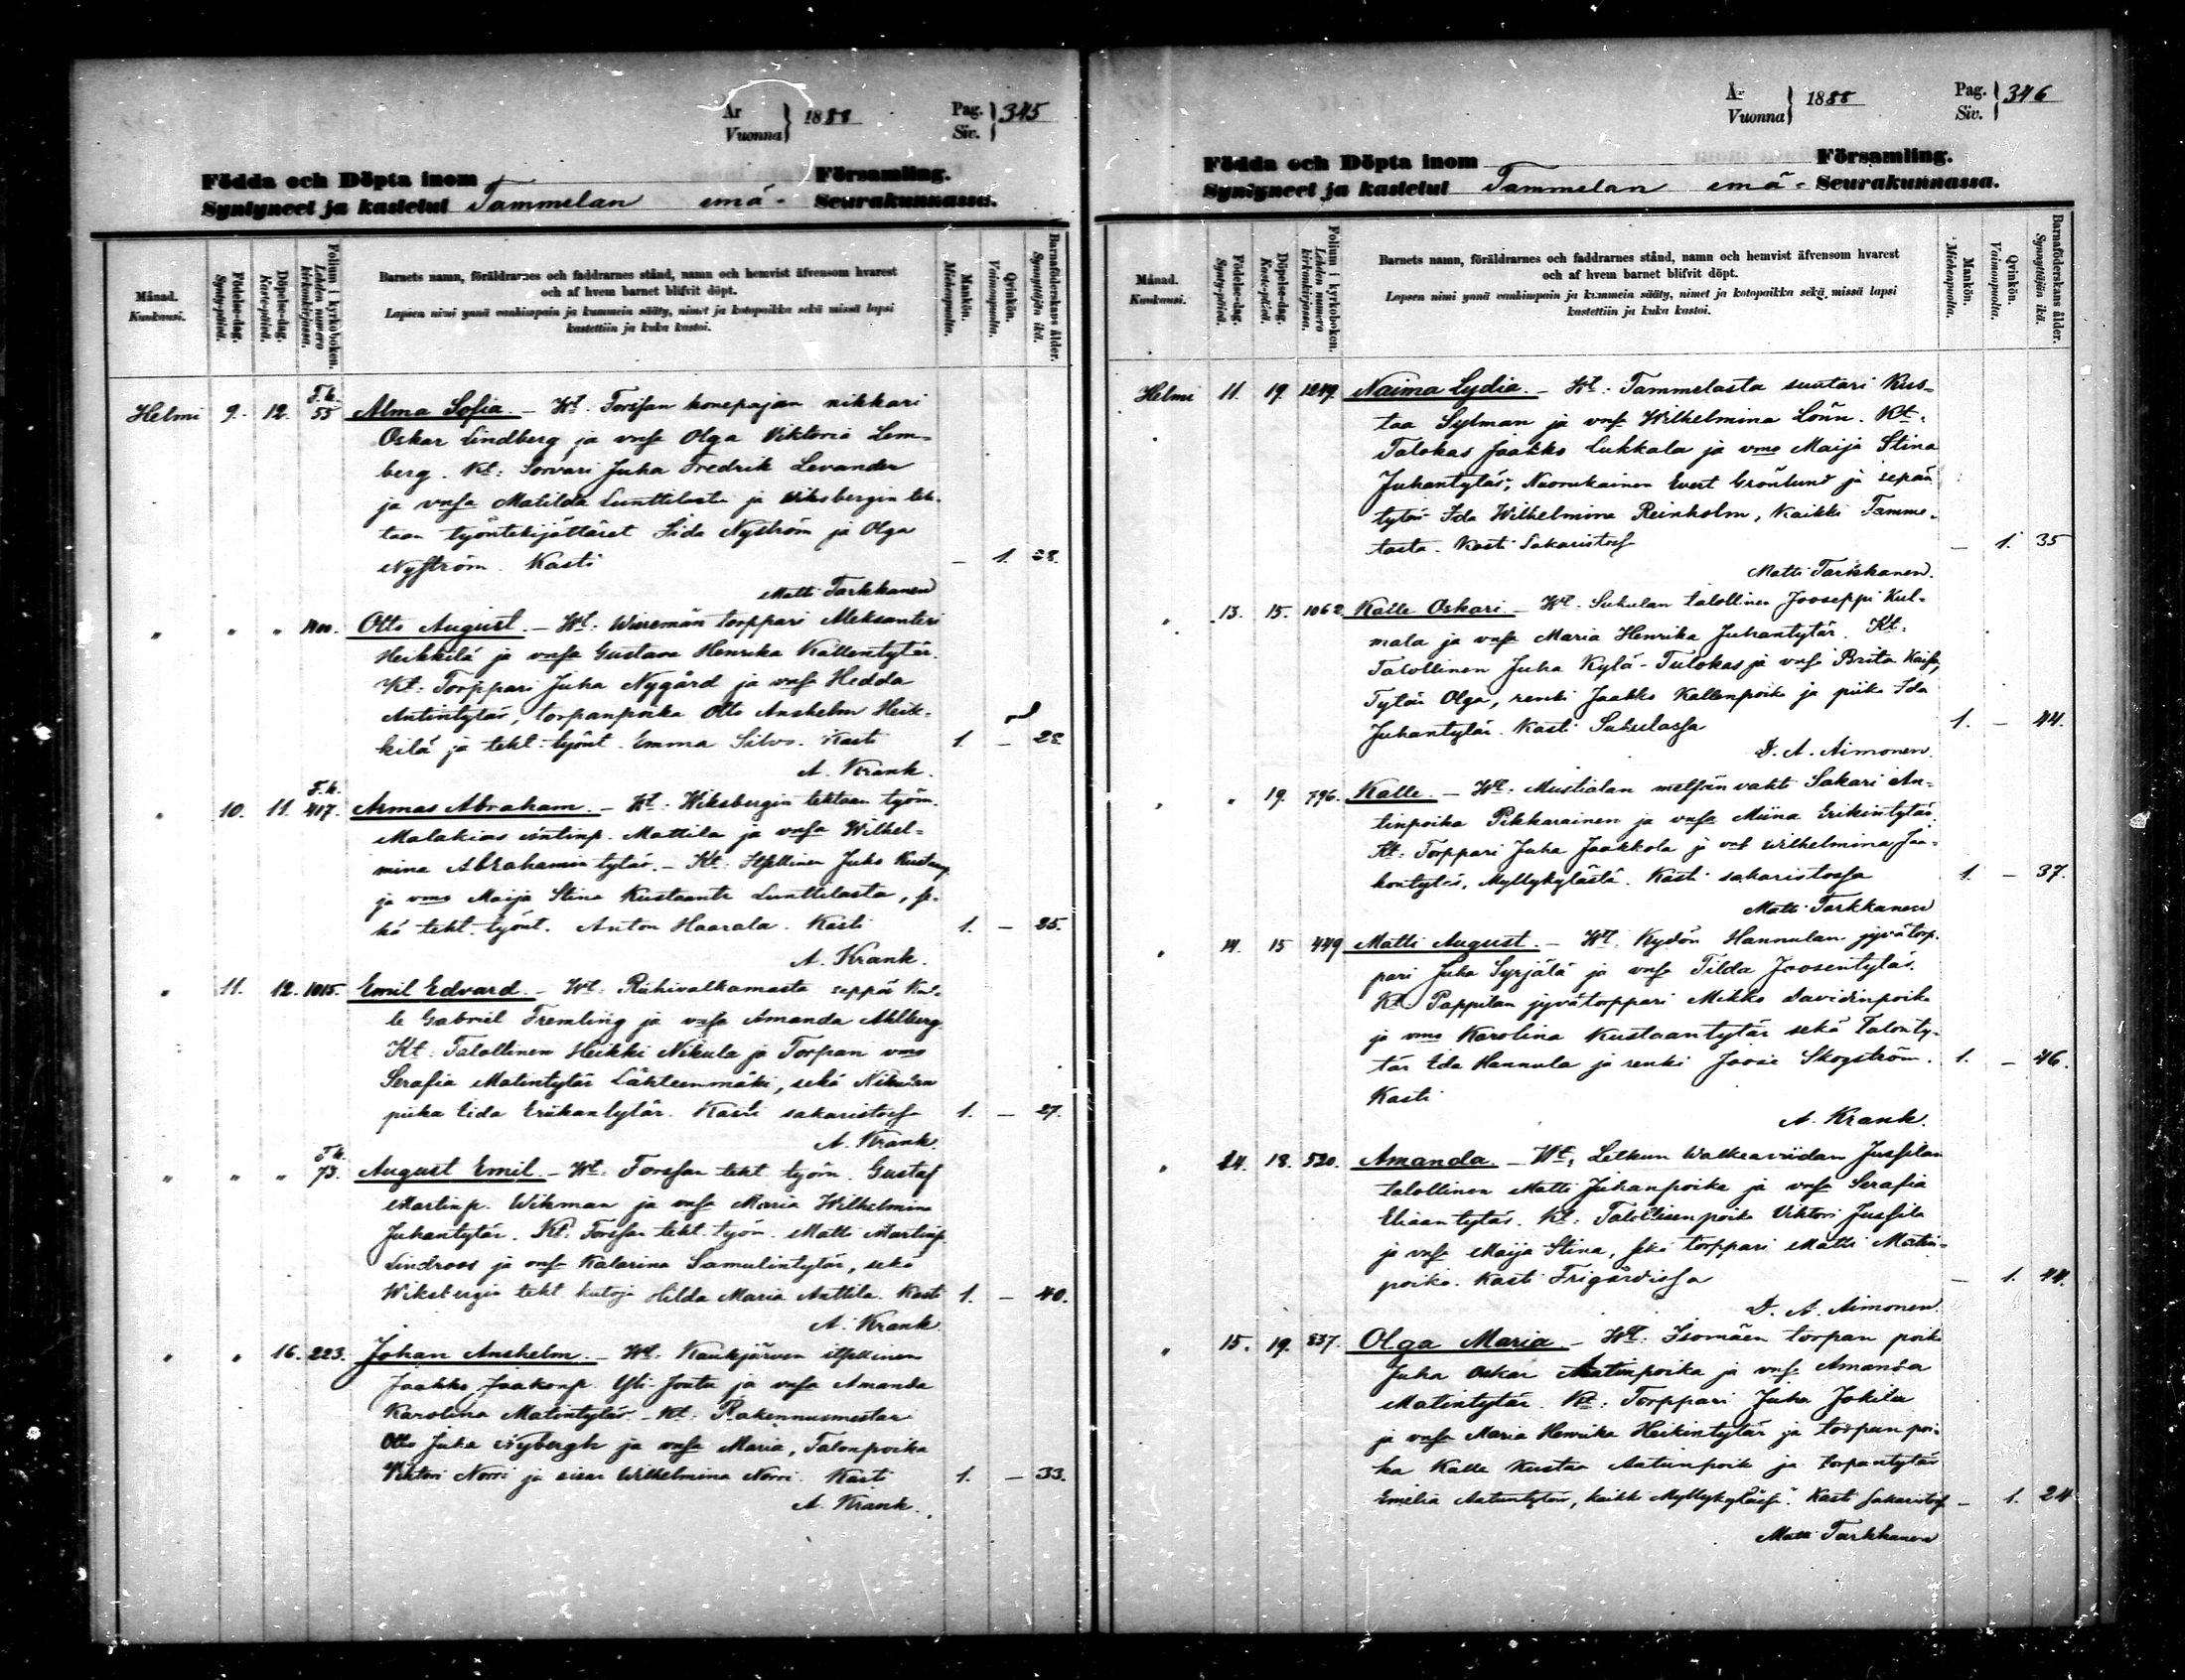 År
Vuonna } 1888
Pag.
Siv. } 345
Födda och Döpta inom Församling.
Syntyneet ja kastetut Tammelan emä- Seurakunnassa.
Månad. Kuukausi.
Födelse-dag. Synty-päivä.
Döpelse-dag. Kaste-päivä.
Folium i kyrkoboken. Lehden numero kirkonkirjassa.
Barnets namn, föräldrarnes och faddrarnes stånd, namn och hemvist äfvensom hvarest
och af hvem barnet blifvit döpt.
Lapsen nimi ynnä vanhimpain ja kummein sääty, nimet ja kotopaikka sekä missä lapsi
kastettiin ja kuka kastoi.
Mankön. Miehenpuolta.
Qvinkön. Vaimonpuolta.
Barnaföderskans ålder. Synnyttäjän ikä.
F.k.
Helmi 9. 12. 55 Alma Sofia. – Wt. Forssan konepajan nikkari
Oskar Lindberg ja vmsa Olga Viktoria Lem-
berg. Kt: Sorvari Juha Fredrik Levander
ja vmsa Matilda Lunttilasta ja Wiksbergin teh-
taan työntekijättäret Iida Nyström ja Olga
Nyström. Kasti – 1. 28.
Matti Tarkkanen
" " " Otto August. – Wt: torppari Aleksanteri
Heikkilä ja vmsa Gustava Henrika Kallentytär.
Kt: Torppari Juha Nygård ja vmsa Hedda
Antintytär, torpanpoika Otto Anshelm Heik-
kilä ja teht. työnt. Emma Silvo. Kasti 1. – 28.
A. Krank.
F.k.
" 10. 11. 417. Armas Abraham. – Wt: Wiksbergin tehtaan työm.
Malakias Antinp. Mattila ja vmsa Wilhel-
mina Abrahamintytär. – Kt: Itsellinen Juho Kustaanp.
ja vmo Maija Stina Kustaantr Lunttilasta, se-
kä teht. työnt. Anton Haarala. Kasti 1. – 25.
A. Krank.
" 11. 12. 1015. Emil Edvard. – Wt: Riihivalkamasta seppä Kal-
le Gabriel Fremling ja vmsa Amanda Ahlberg
Kt: Talollinen Heikki Nikula ja Torpan vmo
Serafia Matintytär Lähteenmäki, sekä Nikulan
piika Eida Erikantytär. Kasti sakaristossa 1. – 27.
A. Krank.
F.k.
" " " 73. August Emil. – Wt: Forssan teht. työm. Gustaf
Martinp. Wikman ja vmsa Maria Wilhelmina
Juhantytär. Kt: Forssan teht. työm. Matti Martinp.
Lindroos ja vmsa Katarina Samulintytär, sekä
Wiksbergin teht. kutoja Hilda Maria Anttila. Kasti 1. – 40.
A. Krank.
" " 16. 223. Johan Anshelm. – Wt. Kaukjärven itsellinen
Jaakko Jaakonp. Yli-Jouta ja vmsa Amanda
Karolina Matintytär. – Kt: Rakennusmestari
Otto Juha Nybergh ja vmsa Maria, Talonpoika
Viktori Norri ja sisar Wilhelmina Norri. Kasti 1. – 33.
A. Krank.
År
Vuonna } 1888
Pag.
Siv. } 346
Födda och Döpta inom Församling.
Syntyneet ja kastetut Tammelan emä- Seurakunnassa.
Månad. Kuukausi.
Födelse-dag. Synty-päivä.
Döpelse-dag. Kaste-päivä.
Folium i kyrkoboken. Lehden numero kirkonkirjassa.
Barnets namn, föräldrarnes och faddrarnes stånd, namn och hemvist äfvensom hvarest
och af hvem barnet blifvit döpt.
Lapsen nimi ynnä vanhimpain ja kummein sääty, nimet ja kotopaikka sekä missä lapsi
kastettiin ja kuka kastoi.
Mankön. Miehenpuolta.
Qvinkön. Vaimonpuolta.
Barnaföderskans ålder. Synnyttäjän ikä.
Helmi 11. 19. 1249. Naima Lydia. – Wt: Tammelasta suutari Kus-
taa Sylman ja vmsa Wilhelmina Lönn. Kt:
Talokas Jaakko Lukkala ja vmo Maija Stina
Juhantytär, Nuorukainen Evert Grönlund ja sepän
tytär Ida Wilhelmina Reinholm, Kaikki Tamme-
lasta. Kasti Sakaristossa – 1. 35
Matti Tarkkanen.
" 13. 15. 1062 Kalle Oskari. – Wt: Sukulan talollinen Jooseppi Kul-
mala ja vmsa Maria Henrika Juhantytär. Kt:
Talollinen Juha Kylä-Tulokas ja vmsa Brita Kaisa,
Tytär Olga, renki Jaakko Kallenpoika ja piika Ida
Juhantytär. Kasti Sukulassa 1. – 44.
D. A. Aimonen.
" " 19. 796. Kalle. – Wt: Mustialan metsänvahti Sakari An-
tinpoika Pikkarainen ja vmsa Miina Erikintytär.
Kt: Torppari Juha Jaakkola ja vmsa Wilhelmina Jaa-
kontytär, Myllykylästä. Kasti sakaristossa 1. – 37.
Matti Tarkkanen
" 14. 15 449 Matti August. – Wt. Kydön Hannulan jyvätorp-
pari Juha Syrjälä ja vmsa Tilda Joosentytär.
Kt: Pappilan jyvätorppari Mikko Davidinpoika
ja vmo Karolina Kustaantytär sekä Talonty-
tär Eda Hannula ja renki Joose Skogström. 1. – 46.
Kasti
A. Krank.
" 14. 18. 530. Amanda. – Wt: Letkun Walkeaviidan Jussilan
talollinen Matti Juhanpoika ja vmsa Serafia
Eliaantytär. Kt: Talollisenpoika Viktori Jussila
ja vmsa Maija Stina, sekä torppari Matti Matin-
poika. Kasti Frigårdissa – 1. 44.
D. A. Aimonen.
" 15. 19. 837. Olga Maria. – Wt: Isomäen torpan poika
Juha Oskar Aatunpoika ja vmsa Amanda
Matintytär. Kt: Torppari Juha Jokila
ja vmsa Maria Henrika Heikintytär ja torpan poi-
ka Kalle Kustaa Aatunpoika ja torpantytär
Emelia Aatuntytär, kaikki Myllykylässä. Kasti Sakaristossa – 1. 24
Matti Tarkkanen